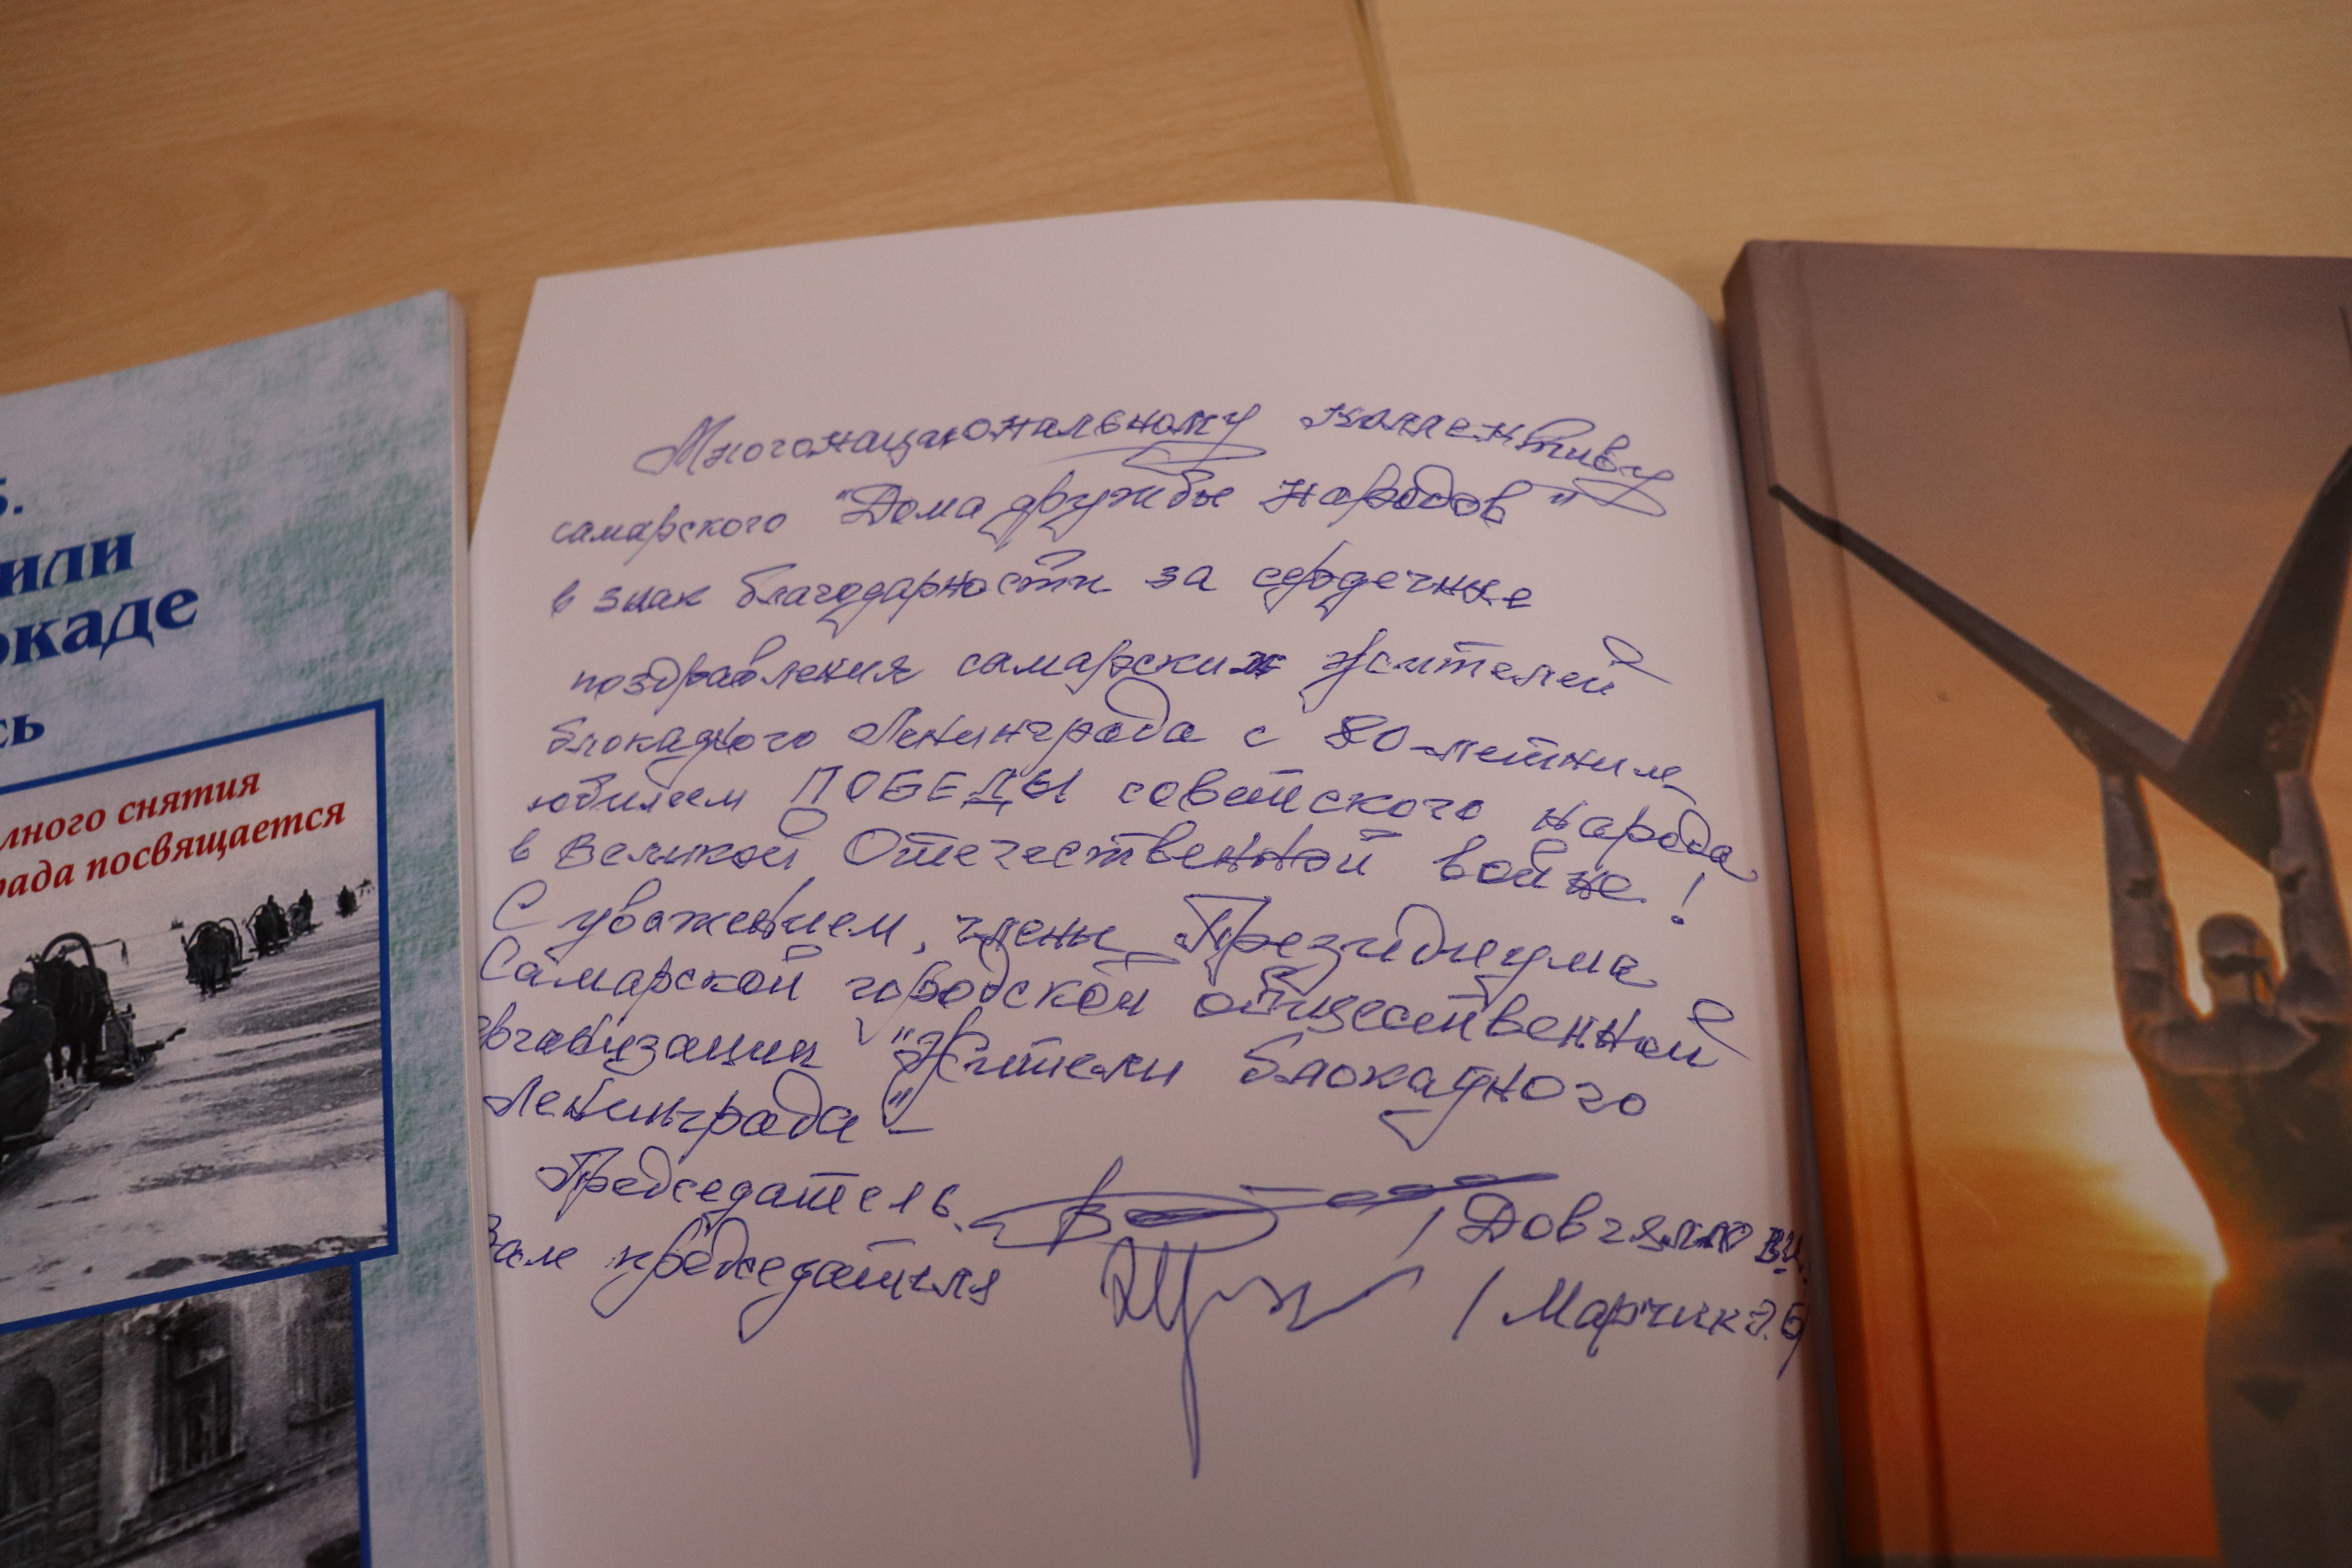 5.
или
окаде
сь
лного снятия
рада посвящается
Многонациональному коллективу
самарского "Дома дружбы народов"
в знак благодарности за сердечные
поздравления самарских жителей
блокадного Ленинграда с 80-летним
юбилеем ПОБЕДЫ советского народа
в Великой Отечественной войне!
С уважением, члены Президиума
Самарской городской общественной
организации "Жители блокадного
Ленинграда" –
Председатель / Довгялло В.И.
Зам председателя / Марчик Э.Б